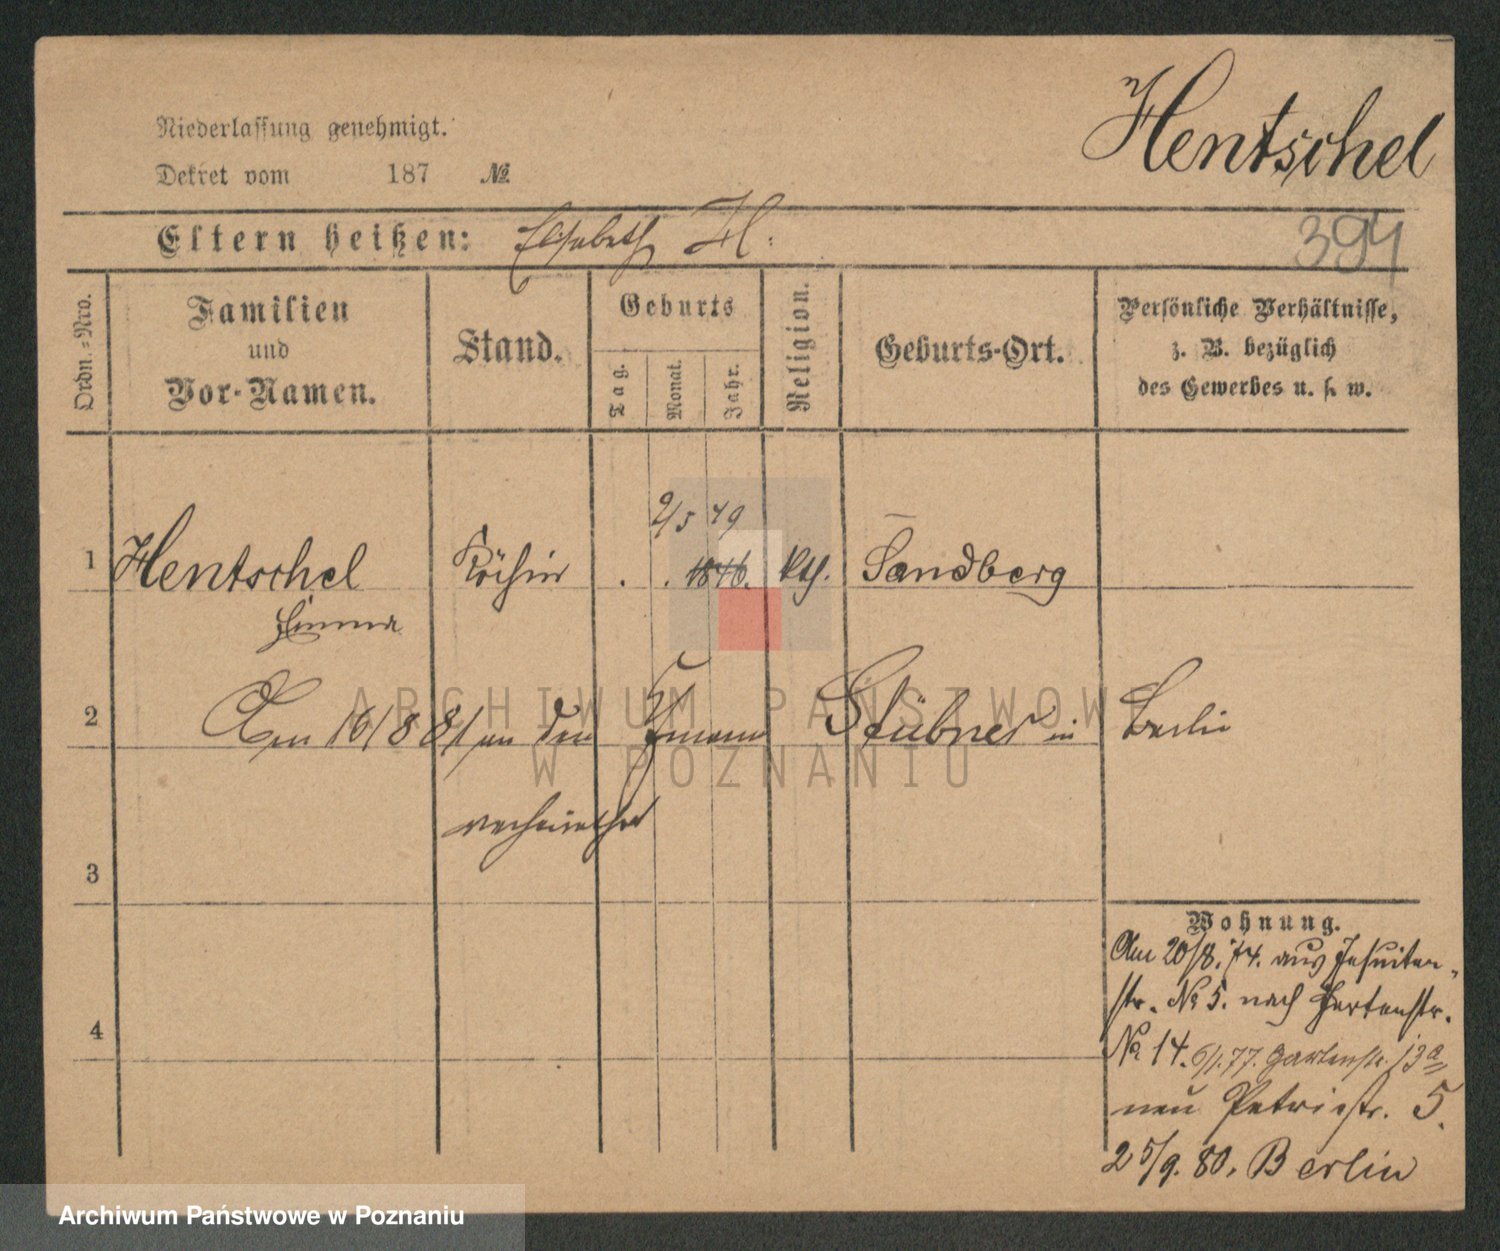 Hentschel
Niederlassung genehmigt.
Dekret vom 187 №
Eltern heißen: Elisabeth H.
394
Ordn.-Nro.
Familien
und
Vor-Namen.
Stand.
Geburts
Tag.
Monat.
Jahr.
Religion.
Geburts-Ort.
Persönliche Verhältnisse,
z. B. bezüglich
des Gewerbes u. s. w.
9/5 49
1 Hentschel Köchin . . 1846. kth. Sandberg
Emma
2 Am 16/8 81 an den Stübner in Berlin
verheirathet
3
Wohnung.
Am 20/8. 74. aus Jesuiten-
str. № 5. nach Gartenstr.
4
№ 14. 6/1.77. Gartenstr. 13a
neu Petristr. 5.
25/9. 80. Berlin
ARCHIWUM PAŃSTWOW
W POZNANIU
Archiwum Państwowe w Poznaniu